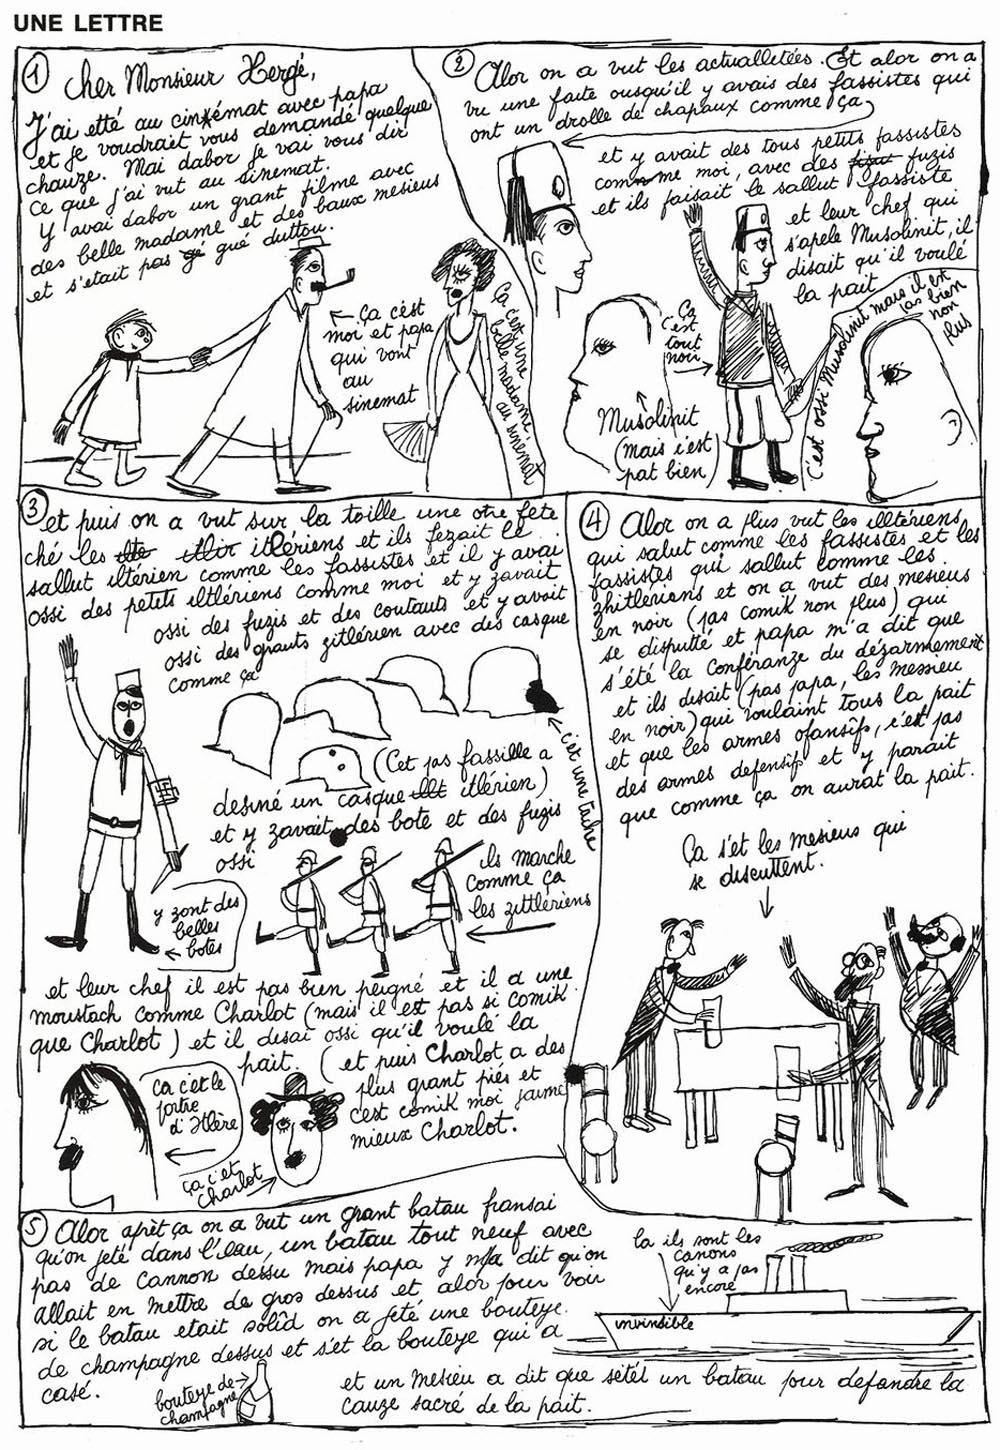 UNE LETTRE
1
Cher Monsieur Hergé,
J'ai etté au cinémat avec papa
et je voudrait vous demandé quelque
chauze. Mai dabor je vai vous dir
ce que j'ai vut au sinemat.
Y avai dabor un grant filme avec
des belle madame et des baux mesieus
et s'etait pas gé gué duttou.
← Ça cést
moi et papa
qui vont
au
sinemat
Ça c'ét une
belle madame
au sinémat
2
Alor on a vut les actualletées. Et alor on a
vu une faite ousqu'il y avais des fassistes qui
ont un drolle de chapaux comme ça
et y avait des tous petits fassistes
comme moi, avec des fuzis
et ils faisait le sallut fassiste
et leur chef qui
s'apele Musolinit, il
disait qu'il voulé
la pait
Ça
est
tout
noir
Musolinit
(mais c'est
pat bien)
c'est ossi Musolinit mais il est
pas bien
non
plus
3
et puis on a vut sur la toille une otre fete
ché les itlériens et ils fezait le
sallut iltérien comme les fassistes et il y avai
ossi des petits iltlériens comme moi et y zavait
ossi des fuzis et des coutauts et y avoit
ossi des grants zitlérien avec des casque
comme ça
← c'ét une tache
(Cet pas fassille a
desiné un casque itlérien)
et y zavait des bote et des fuzis
ossi
ils marche
comme ça
les zittlériens
y zont des
belles
← botes
et leur chef il est pas bien peigné et il a une
moustach comme Charlot (mais il est pas si comik
que Charlot) et il disai ossi qu'il voulé la
pait. (et puis Charlot a des
plus grant piés et
c'est comik moi j'aime
mieux Charlot.
Ça c'et le
portre
d'Itlère
ça c'et
Charlot
4
Alor on a plus vut les illtériens
qui salut comme les fassistes et les
fassistes qui sallut comme les
zhitlérians et on a vut des mesieus
en noir (pas comik non plus) qui
se disputté et papa m'a dit que
s'été la conféranze du dézarmement
et ils disait (pas papa, les messieu
en noir) qui voulaint tous la pait
et que les armes ofansifs, c'est pas
des armes defensif et y parait
que comme ça on aurat la pait.
Ça s'et les mesieus qui
se discuttent.
5
Alor aprèt ça on a vut un grant batau fransai
qu'on jeté dans l'eau, un batau tout neuf avec
pas de cannon dessu mais papa y m'a dit qu'on
allait en mettre de gros dessus et alor pour voir
si le batau etait solid on a jeté une bouteye
de champagne dessus et s'et la bouteye qui a
casé.
bouteye de →
champagne
la ils sont les
canons
qu'y a pas
encore
invinsible
et un mesieu a dit que sétét un batau pour defandre la
cauze sacré de la pait.